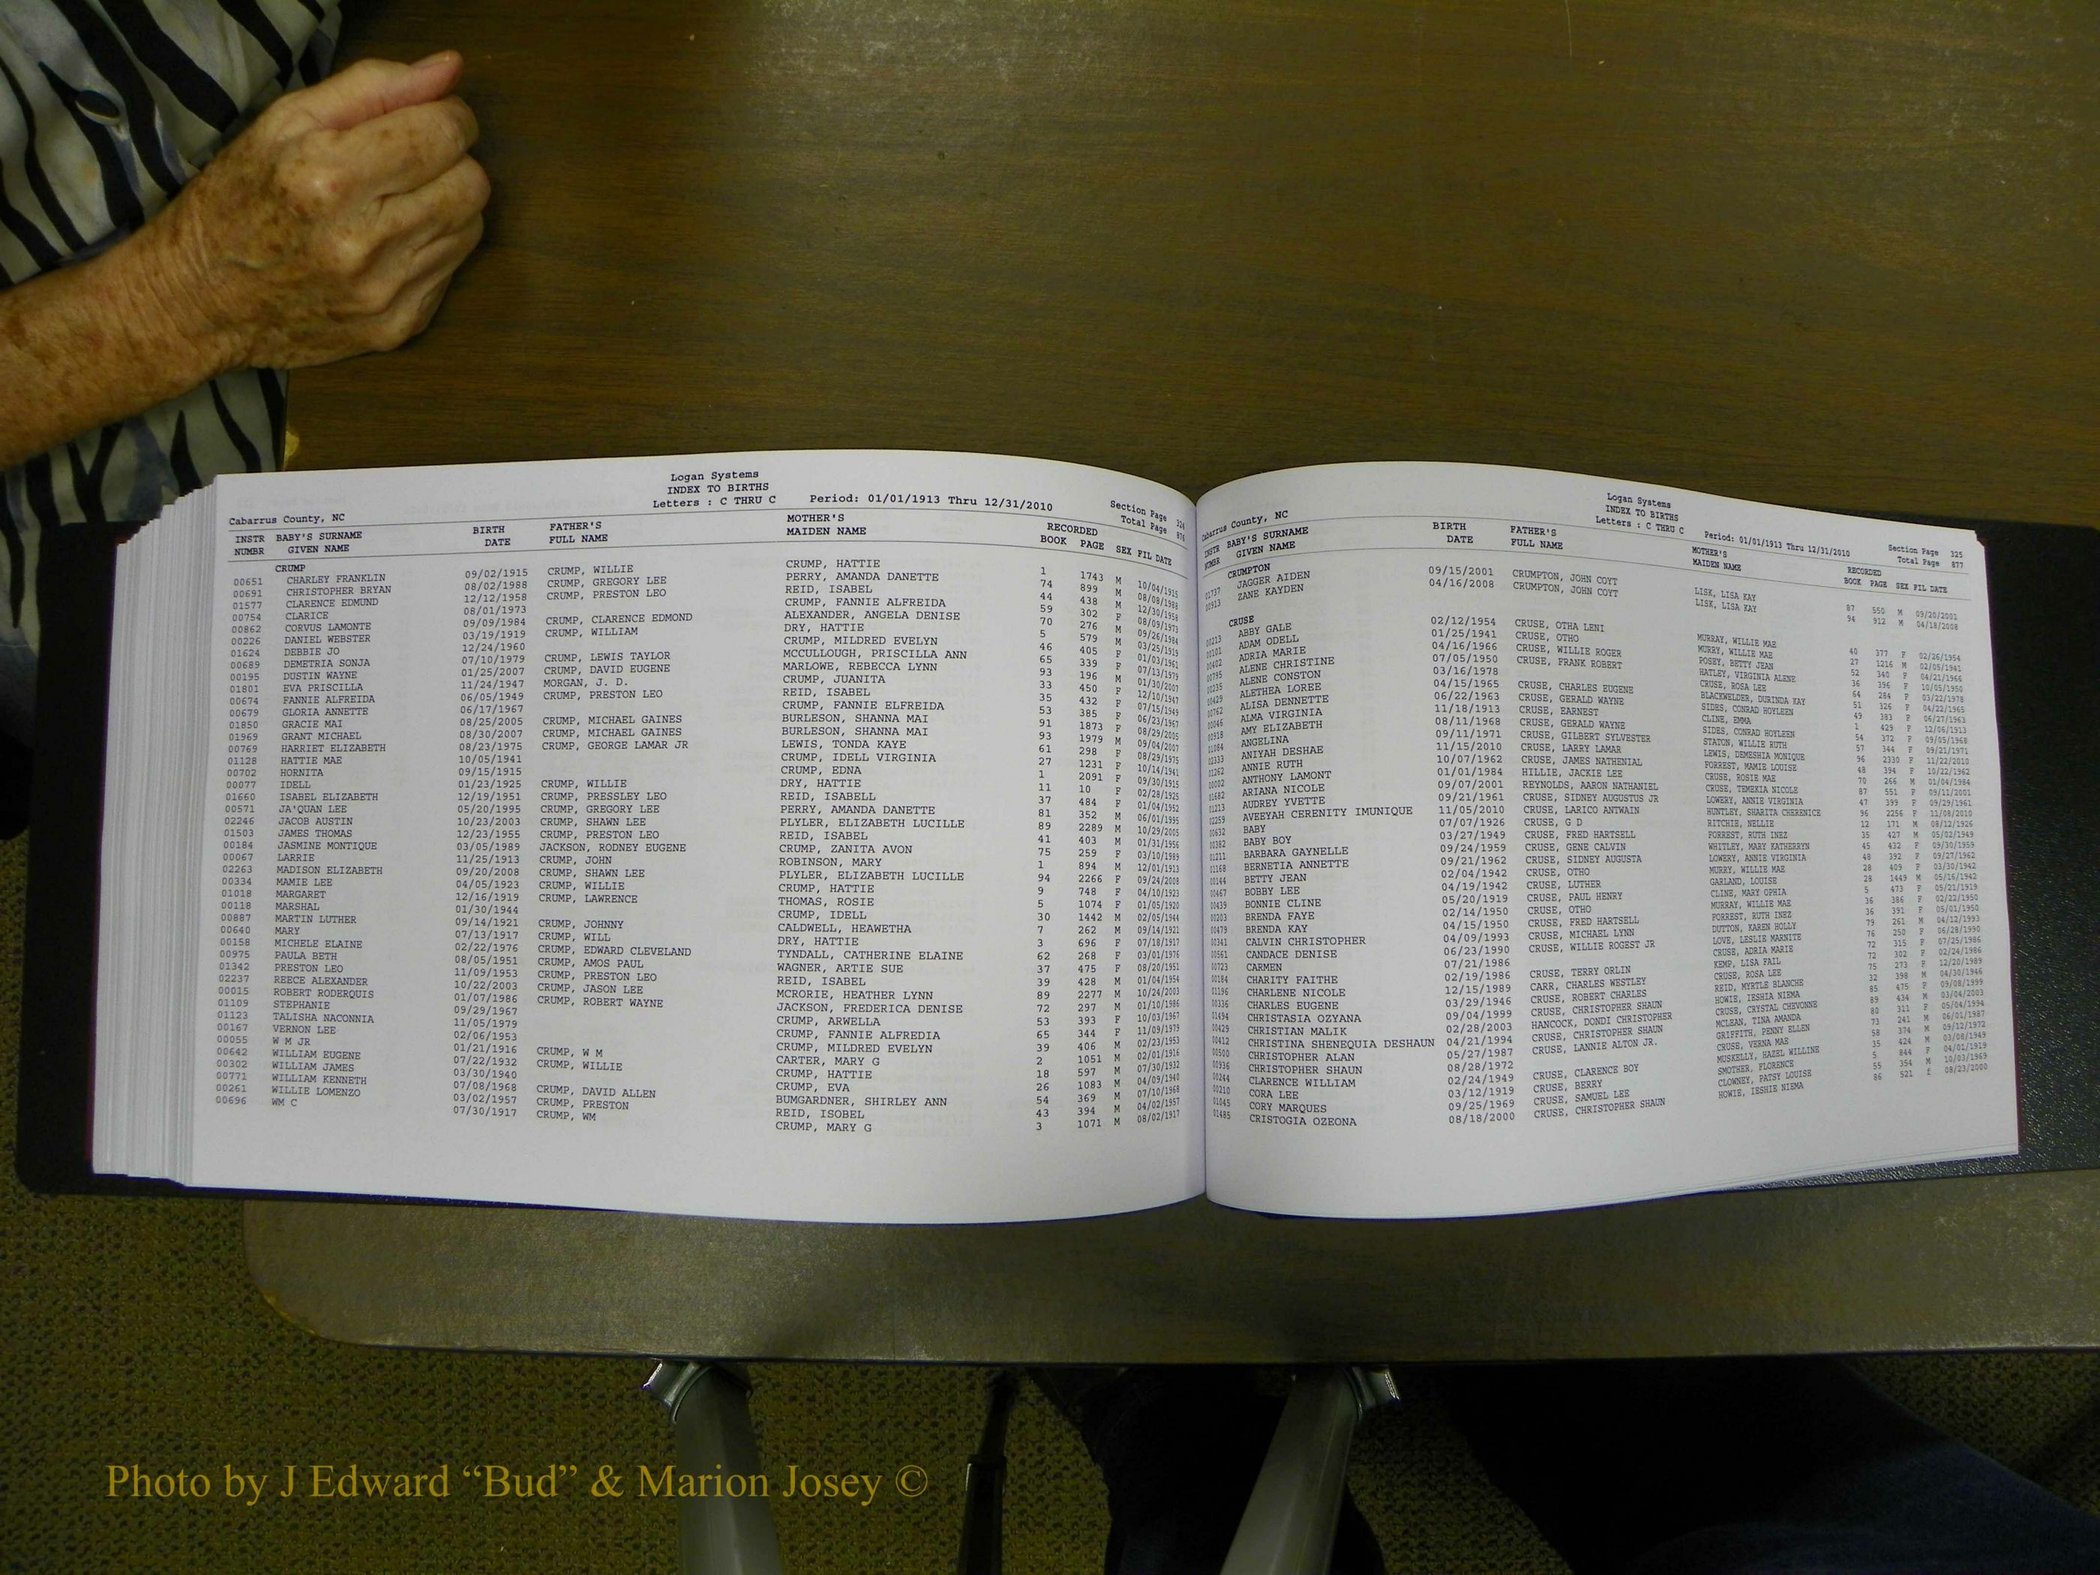 Logan Systems
INDEX TO BIRTHS
Cabarrus County, NC Letters : C THRU C Period: 01/01/1913 Thru 12/31/2010 Section Page 324
Total Page 876
INSTR BABY'S SURNAME BIRTH FATHER'S MOTHER'S RECORDED
NUMBR GIVEN NAME DATE FULL NAME MAIDEN NAME BOOK PAGE SEX FIL DATE
CRUMP
00651 CHARLEY FRANKLIN 09/02/1915 CRUMP, WILLIE CRUMP, HATTIE 1 1743 M 10/04/1915
00691 CHRISTOPHER BRYAN 08/02/1988 CRUMP, GREGORY LEE PERRY, AMANDA DANETTE 74 899 M 08/08/1988
01577 CLARENCE EDMUND 12/12/1958 CRUMP, PRESTON LEO REID, ISABEL 44 438 M 12/30/1958
00754 CLARICE 08/01/1973 CRUMP, FANNIE ALFREIDA 59 302 F 08/09/1973
00862 CORVUS LAMONTE 09/09/1984 CRUMP, CLARENCE EDMOND ALEXANDER, ANGELA DENISE 70 276 M 09/26/1984
00226 DANIEL WEBSTER 03/19/1919 CRUMP, WILLIAM DRY, HATTIE 5 579 M 03/25/1919
01624 DEBBIE JO 12/24/1960 CRUMP, MILDRED EVELYN 46 405 F 01/03/1961
00689 DEMETRIA SONJA 07/10/1979 CRUMP, LEWIS TAYLOR MCCULLOUGH, PRISCILLA ANN 65 339 F 07/13/1979
00195 DUSTIN WAYNE 01/25/2007 CRUMP, DAVID EUGENE MARLOWE, REBECCA LYNN 93 196 M 01/30/2007
01801 EVA PRISCILLA 11/24/1947 MORGAN, J. D. CRUMP, JUANITA 33 450 F 12/10/1947
00674 FANNIE ALFREIDA 06/05/1949 CRUMP, PRESTON LEO REID, ISABEL 35 432 F 07/15/1949
00679 GLORIA ANNETTE 06/17/1967 CRUMP, FANNIE ELFREIDA 53 385 F 06/23/1967
01850 GRACIE MAI 08/25/2005 CRUMP, MICHAEL GAINES BURLESON, SHANNA MAI 91 1873 F 08/29/2005
01969 GRANT MICHAEL 08/30/2007 CRUMP, MICHAEL GAINES BURLESON, SHANNA MAI 93 1979 M 09/04/2007
00769 HARRIET ELIZABETH 08/23/1975 CRUMP, GEORGE LAMAR JR LEWIS, TONDA KAYE 61 298 F 08/29/1975
01128 HATTIE MAE 10/05/1941 CRUMP, IDELL VIRGINIA 27 1231 F 10/14/1941
00702 HORNITA 09/15/1915 CRUMP, EDNA 1 2091 F 09/30/1915
00077 IDELL 01/23/1925 CRUMP, WILLIE DRY, HATTIE 11 10 F 02/28/1925
01660 ISABEL ELIZABETH 12/19/1951 CRUMP, PRESSLEY LEO REID, ISABELL 37 484 F 01/04/1952
00571 JA'QUAN LEE 05/20/1995 CRUMP, GREGORY LEE PERRY, AMANDA DANETTE 81 352 M 06/01/1995
02246 JACOB AUSTIN 10/23/2003 CRUMP, SHAWN LEE PLYLER, ELIZABETH LUCILLE 89 2289 M 10/29/2003
01503 JAMES THOMAS 12/23/1955 CRUMP, PRESTON LEO REID, ISABEL 41 403 M 01/31/1956
00184 JASMINE MONTIQUE 03/05/1989 JACKSON, RODNEY EUGENE CRUMP, ZANITA AVON 75 259 F 03/10/1989
00067 LARRIE 11/25/1913 CRUMP, JOHN ROBINSON, MARY 1 894 M 12/01/1913
02263 MADISON ELIZABETH 09/20/2008 CRUMP, SHAWN LEE PLYLER, ELIZABETH LUCILLE 94 2266 F 09/24/2008
00334 MAMIE LEE 04/05/1923 CRUMP, WILLIE CRUMP, HATTIE 9 748 F 04/10/1923
01018 MARGARET 12/16/1919 CRUMP, LAWRENCE THOMAS, ROSIE 5 1074 F 01/05/1920
00118 MARSHAL 01/30/1944 CRUMP, IDELL 30 1442 M 02/05/1944
00887 MARTIN LUTHER 09/14/1921 CRUMP, JOHNNY CALDWELL, HEAWETHA 7 262 M 09/14/1921
00640 MARY 07/13/1917 CRUMP, WILL DRY, HATTIE 3 696 F 07/18/1917
00158 MICHELE ELAINE 02/22/1976 CRUMP, EDWARD CLEVELAND TYNDALL, CATHERINE ELAINE 62 268 F 03/01/1976
00975 PAULA BETH 08/05/1951 CRUMP, AMOS PAUL WAGNER, ARTIE SUE 37 475 F 08/20/1951
01342 PRESTON LEO 11/09/1953 CRUMP, PRESTON LEO REID, ISABEL 39 428 M 01/04/1954
02237 REECE ALEXANDER 10/22/2003 CRUMP, JASON LEE MCRORIE, HEATHER LYNN 89 2277 M 10/24/2003
00015 ROBERT RODERQUIS 01/07/1986 CRUMP, ROBERT WAYNE JACKSON, FREDERICA DENISE 72 297 M 01/10/1986
01109 STEPHANIE 09/29/1967 CRUMP, ARWELLA 53 393 F 10/03/1967
01123 TALISHA NACONNIA 11/05/1979 CRUMP, FANNIE ALFREDIA 65 344 F 11/09/1979
00167 VERNON LEE 02/06/1953 CRUMP, MILDRED EVELYN 39 406 M 02/23/1953
00055 W M JR 01/21/1916 CRUMP, W M CARTER, MARY G 2 1051 M 02/01/1916
00642 WILLIAM EUGENE 07/22/1932 CRUMP, WILLIE CRUMP, HATTIE 18 597 M 07/30/1932
00302 WILLIAM JAMES 03/30/1940 CRUMP, EVA 26 1083 M 04/09/1940
00771 WILLIAM KENNETH 07/08/1968 CRUMP, DAVID ALLEN BUMGARDNER, SHIRLEY ANN 54 369 M 07/10/1968
00261 WILLIE LOMENZO 03/02/1957 CRUMP, PRESTON REID, ISOBEL 43 394 M 04/02/1957
00696 WM C 07/30/1917 CRUMP, WM CRUMP, MARY G 3 1071 M 08/02/1917
Logan Systems
INDEX TO BIRTHS
Cabarrus County, NC Letters : C THRU C Period: 01/01/1913 Thru 12/31/2010 Section Page 325
Total Page 877
INSTR BABY'S SURNAME BIRTH FATHER'S MOTHER'S RECORDED
NUMBR GIVEN NAME DATE FULL NAME MAIDEN NAME BOOK PAGE SEX FIL DATE
CRUMPTON
01737 JAGGER AIDEN 09/15/2001 CRUMPTON, JOHN COYT LISK, LISA KAY 87 550 M 09/20/2001
00913 ZANE KAYDEN 04/16/2008 CRUMPTON, JOHN COYT LISK, LISA KAY 94 912 M 04/18/2008
CRUSE
00213 ABBY GALE 02/12/1954 CRUSE, OTHA LENI MURRAY, WILLIE MAE 40 377 F 02/26/1954
00101 ADAM ODELL 01/25/1941 CRUSE, OTHO MURRY, WILLIE MAE 27 1216 M 02/05/1941
00402 ADRIA MARIE 04/16/1966 CRUSE, WILLIE ROGER POSEY, BETTY JEAN 52 340 F 04/21/1966
00795 ALENE CHRISTINE 07/05/1950 CRUSE, FRANK ROBERT HATLEY, VIRGINIA ALENE 36 396 F 10/05/1950
00235 ALENE CONSTON 03/16/1978 CRUSE, ROSA LEE 64 284 F 03/22/1978
00429 ALETHEA LOREE 04/15/1965 CRUSE, CHARLES EUGENE BLACKWELDER, DURINDA KAY 51 326 F 04/22/1965
00762 ALISA DENNETTE 06/22/1963 CRUSE, GERALD WAYNE SIDES, CONRAD HOYLEEN 49 383 F 06/27/1963
00046 ALMA VIRGINIA 11/18/1913 CRUSE, EARNEST CLINE, EMMA 1 429 F 12/06/1913
00918 AMY ELIZABETH 08/11/1968 CRUSE, GERALD WAYNE SIDES, CONRAD HOYLEEN 54 372 F 09/05/1968
01084 ANGELINA 09/11/1971 CRUSE, GILBERT SYLVESTER STATON, WILLIE RUTH 57 344 F 09/21/1971
02333 ANIYAH DESHAE 11/15/2010 CRUSE, LARRY LAMAR LEWIS, DEMESHIA MONIQUE 96 2330 F 11/22/2010
01262 ANNIE RUTH 10/07/1962 CRUSE, JAMES NATHENIAL FORREST, MAMIE LOUISE 48 394 F 10/22/1962
00002 ANTHONY LAMONT 01/01/1984 HILLIE, JACKIE LEE CRUSE, ROSIE MAE 70 266 M 01/04/1984
01682 ARIANA NICOLE 09/07/2001 REYNOLDS, AARON NATHANIEL CRUSE, TEMEKIA NICOLE 87 551 F 09/11/2001
01213 AUDREY YVETTE 09/21/1961 CRUSE, SIDNEY AUGUSTUS JR LOWERY, ANNIE VIRGINIA 47 399 F 09/29/1961
02259 AVEEYAH CERENITY IMUNIQUE 11/05/2010 CRUSE, LARICO ANTWAIN HUNTLEY, SHARITA CHERENICE 96 2256 F 11/08/2010
00632 BABY 07/07/1926 CRUSE, G D RITCHIE, NELLIE 12 171 M 08/12/1926
00382 BABY BOY 03/27/1949 CRUSE, FRED HARTSELL FORREST, RUTH INEZ 35 427 M 05/02/1949
01211 BARBARA GAYNELLE 09/24/1959 CRUSE, GENE CALVIN WHITLEY, MARY KATHERRYN 45 432 F 09/30/1959
01168 BERNETIA ANNETTE 09/21/1962 CRUSE, SIDNEY AUGUSTA LOWERY, ANNIE VIRGINIA 48 392 F 09/27/1962
00144 BETTY JEAN 02/04/1942 CRUSE, OTHO MURRY, WILLIE MAE 28 409 F 03/30/1942
00467 BOBBY LEE 04/19/1942 CRUSE, LUTHER GARLAND, LOUISE 28 1449 M 05/16/1942
00439 BONNIE CLINE 05/20/1919 CRUSE, PAUL HENRY CLINE, MARY OPHIA 5 473 F 05/21/1919
00203 BRENDA FAYE 02/14/1950 CRUSE, OTHO MURRAY, WILLIE MAE 36 386 F 02/22/1950
00479 BRENDA KAY 04/15/1950 CRUSE, FRED HARTSELL FORREST, RUTH INEZ 36 391 F 05/01/1950
00341 CALVIN CHRISTOPHER 04/09/1993 CRUSE, MICHAEL LYNN DUTTON, KAREN HOLLY 79 261 M 04/12/1993
00561 CANDACE DENISE 06/23/1990 CRUSE, WILLIE ROGEST JR LOVE, LESLIE MARNITE 76 250 F 06/28/1990
00723 CARMEN 07/21/1986 CRUSE, ADRIA MARIE 72 315 F 07/25/1986
00184 CHARITY FAITHE 02/19/1986 CRUSE, TERRY ORLIN KEMP, LISA FAIL 72 302 F 02/24/1986
01196 CHARLENE NICOLE 12/15/1989 CARR, CHARLES WESTLEY CRUSE, ROSA LEE 75 273 F 12/20/1989
00336 CHARLES EUGENE 03/29/1946 CRUSE, ROBERT CHARLES REID, MYRTLE BLANCHE 32 398 M 04/30/1946
01494 CHRISTASIA OZYANA 09/04/1999 CRUSE, CHRISTOPHER SHAUN HOWIE, IESHIA NIEMA 85 475 F 09/08/1999
00429 CHRISTIAN MALIK 02/28/2003 HANCOCK, DONDI CHRISTOPHER CRUSE, CRYSTAL CHEVONNE 89 434 M 03/04/2003
00412 CHRISTINA SHENEQUIA DESHAUN 04/21/1994 CRUSE, CHRISTOPHER SHAUN MCLEAN, TINA AMANDA 80 311 F 05/04/1994
00500 CHRISTOPHER ALAN 05/27/1987 CRUSE, LANNIE ALTON JR. GRIFFITH, PENNY ELLEN 73 241 M 06/01/1987
00936 CHRISTOPHER SHAUN 08/28/1972 CRUSE, VERNA MAE 58 374 M 09/12/1972
00244 CLARENCE WILLIAM 02/24/1949 CRUSE, CLARENCE BOY MUSKELLY, HAZEL WILLINE 35 424 M 03/08/1949
00210 CORA LEE 03/12/1919 CRUSE, BERRY SMOTHER, FLORENCE 5 844 F 04/01/1919
01045 CORY MARQUES 09/25/1969 CRUSE, SAMUEL LEE CLOWNEY, PATSY LOUISE 55 354 M 10/03/1969
01485 CRISTOGIA OZEONA 08/18/2000 CRUSE, CHRISTOPHER SHAUN HOWIE, IESHIE NIEMA 86 521 F 08/23/2000
Photo by J Edward “Bud” & Marion Josey ©